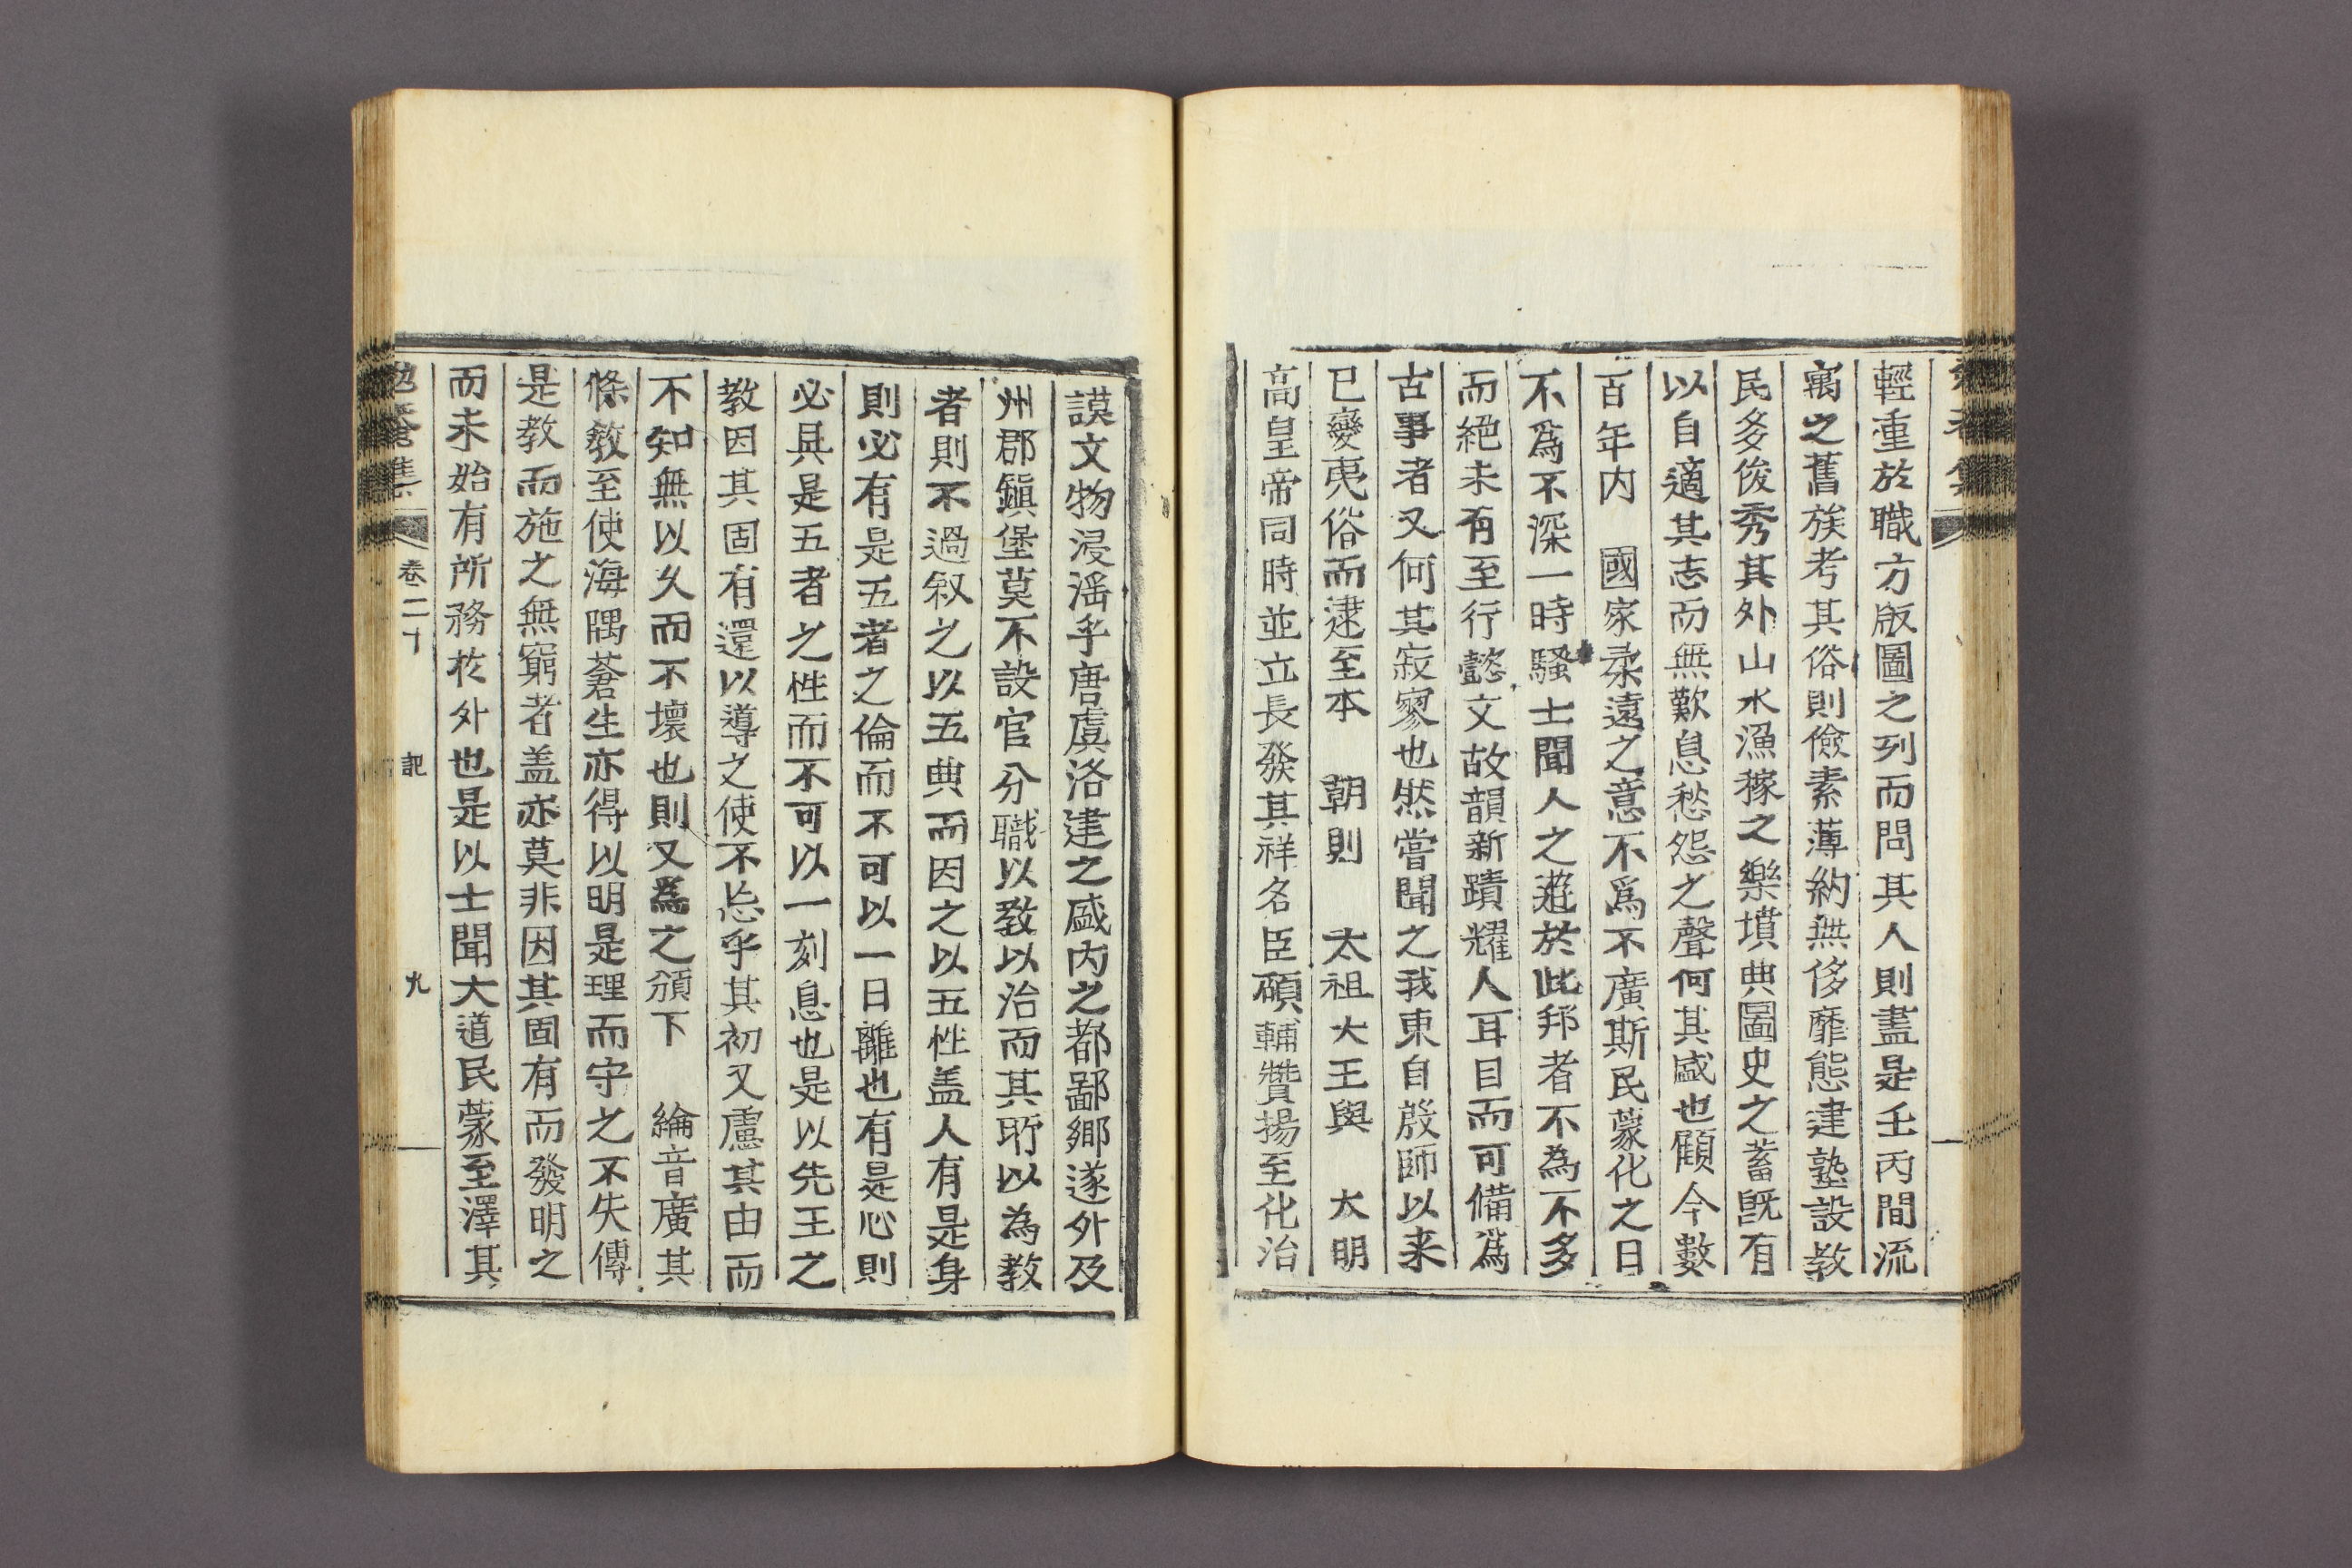 輕重於職方版圖之列而問其人則盡是壬丙間流
寓之舊族考其俗則儉素薄約無侈靡態建塾設教
民多俊秀其外山水漁稼之樂墳典圖史之蓄旣有
以自適其志而無歎息愁怨之聲何其盛也顧今數
百年內 國家柔遠之意不爲不廣斯民蒙化之日
不爲不深一時騷士聞人之遊於此邦者不為不多
而絕未有至行懿文故韻新蹟耀人耳目而可備爲
古事者又何其寂寥也然嘗聞之我東自殷師以来
已變夷俗而逮至本 朝則 太祖大王與 大明
高皇帝同時並立長發其祥名臣碩輔贊揚至化治
謨文物浸滛乎唐虞洛建之盛內之都鄙鄉遂外及
州郡鎭堡莫不設官分職以敎以治而其所以為教
者則不過叙之以五典而因之以五性盖人有是身
則必有是五者之倫而不可以一日離也有是心則
必具是五者之性而不可以一刻息也是以先王之
教因其固有還以導之使不㤀乎其初又慮其由而
不知無以久而不壞也則又為之頒下 綸音廣其
條敎至使海隅蒼生亦得以明是理而守之不失傳
是教而施之無窮者盖亦莫非因其固有而發明之
而未始有所務於外也是以士聞大道民蒙至澤其
卷二十 記 九